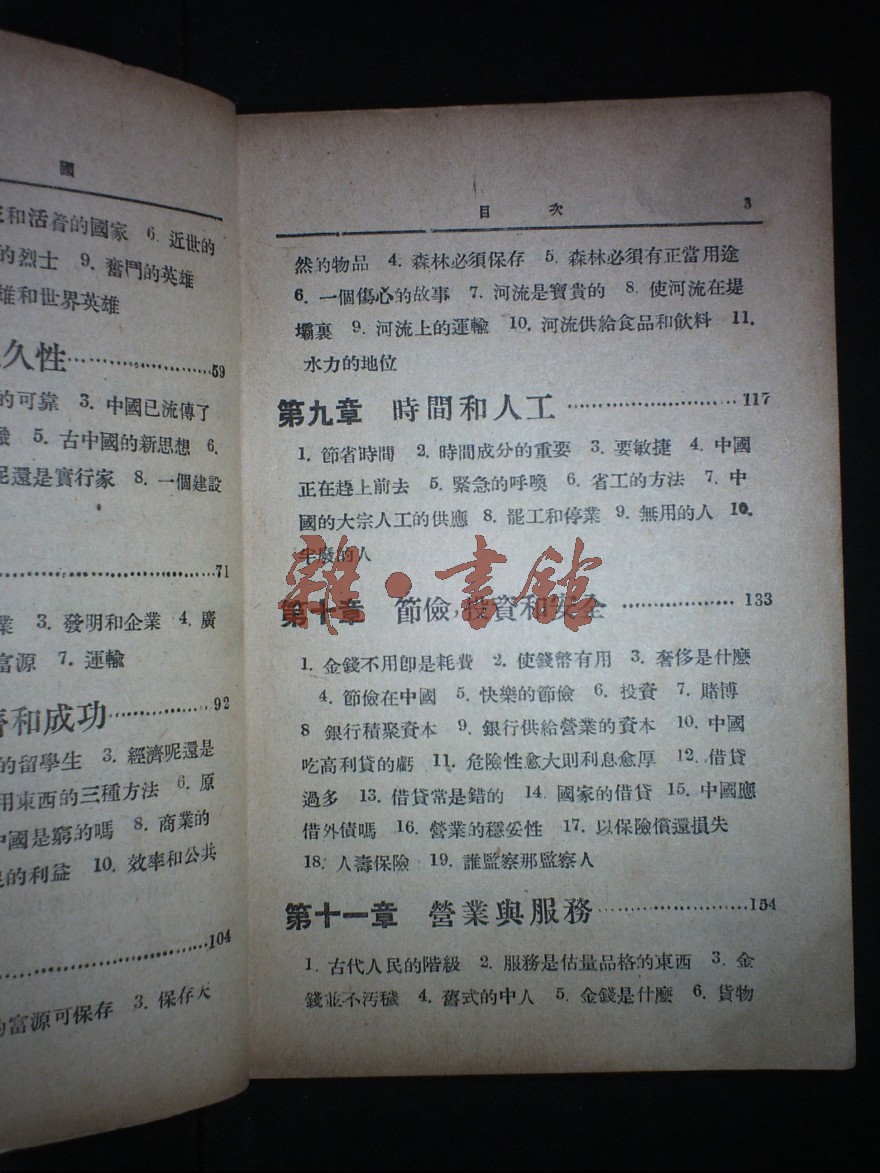 國
和活着的國家 6. 近世的
的烈士 9. 奮鬥的英雄
雄和世界英雄
久性 59
的可靠 3. 中國已流傳了
5. 古中國的新思想 6.
呢還是實行家 8. 一個建設
71
業 3. 發明和企業 4. 廣
富源 7. 運輸
和成功 92
的留學生 3. 經濟呢還是
用東西的三種方法 6. 原
中國是窮的嗎 8. 商業的
的利益 10. 效率和公共
104
的富源可保存 3. 保存天
目 次 3
然的物品 4. 森林必須保存 5. 森林必須有正當用途
6. 一個傷心的故事 7. 河流是寶貴的 8. 使河流在堤
壩裏 9. 河流上的運輸 10. 河流供給食品和飲料 11.
水力的地位
第九章 時間和人工 117
1. 節省時間 2. 時間成分的重要 3. 要敏捷 4. 中國
正在趕上前去 5. 緊急的呼喚 6. 省工的方法 7. 中
國的大宗人工的供應 8. 罷工和停業 9. 無用的人 10.
半廢的人
雜·書館
第十章 節儉,投資和安全 133
1. 金錢不用卽是耗費 2. 使錢幣有用 3. 奢侈是什麼
4. 節儉在中國 5. 快樂的節儉 6. 投資 7. 賭博
8 銀行積聚資本 9. 銀行供給營業的資本 10. 中國
吃高利貸的虧 11. 危險性愈大則利息愈厚 12. 借貸
過多 13. 借貸常是錯的 14. 國家的借貸 15. 中國應
借外債嗎 16. 營業的穩妥性 17. 以保險償還損失
18. 人壽保險 19. 誰監察那監察人
第十一章 營業與服務 154
1. 古代人民的階級 2. 服務是估量品格的東西 3. 金
錢並不汚穢 4. 舊式的中人 5. 金錢是什麼 6. 貨物